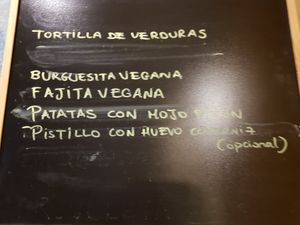 TORTILLA DE VERDURAS
BURGUESITA VEGANA
FAJITA VEGANA
PATATAS CON MOJO
PISTILLO CON HUEVO
(opcional)